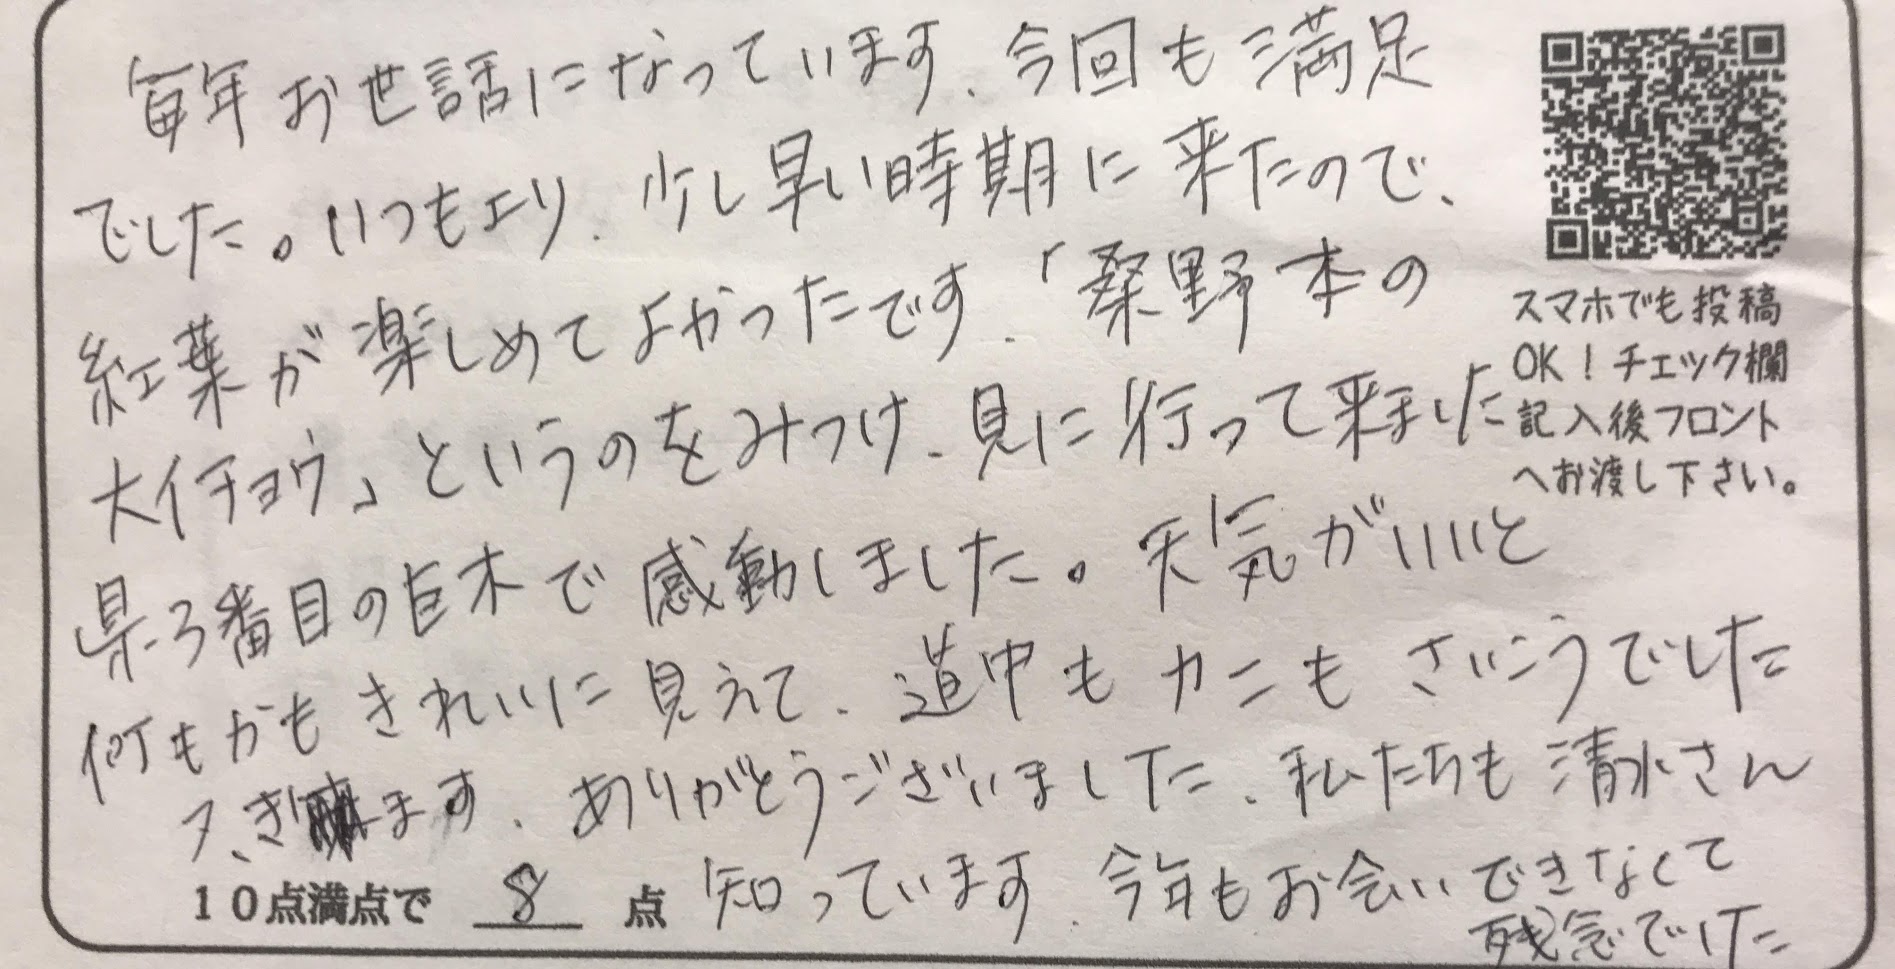 毎年お世話になっています、今回も満足
でした。いつもより、少し早い時期に来たので、
紅葉が楽しめてよかったです。「桑野本の
大イチョウ」というのをみつけ、見に行って来ました
県3番目の巨木で感動しました。天気がいいと
何もかもきれいに見えて、道中もカニもさいこうでした
ます、ありがとうございました、私たちも清水さん
10点満点で 8 点 知っています、今年もお会いできなくて
残念でした
スマホでも投稿
OK！チェック欄
記入後フロント
へお渡し下さい。